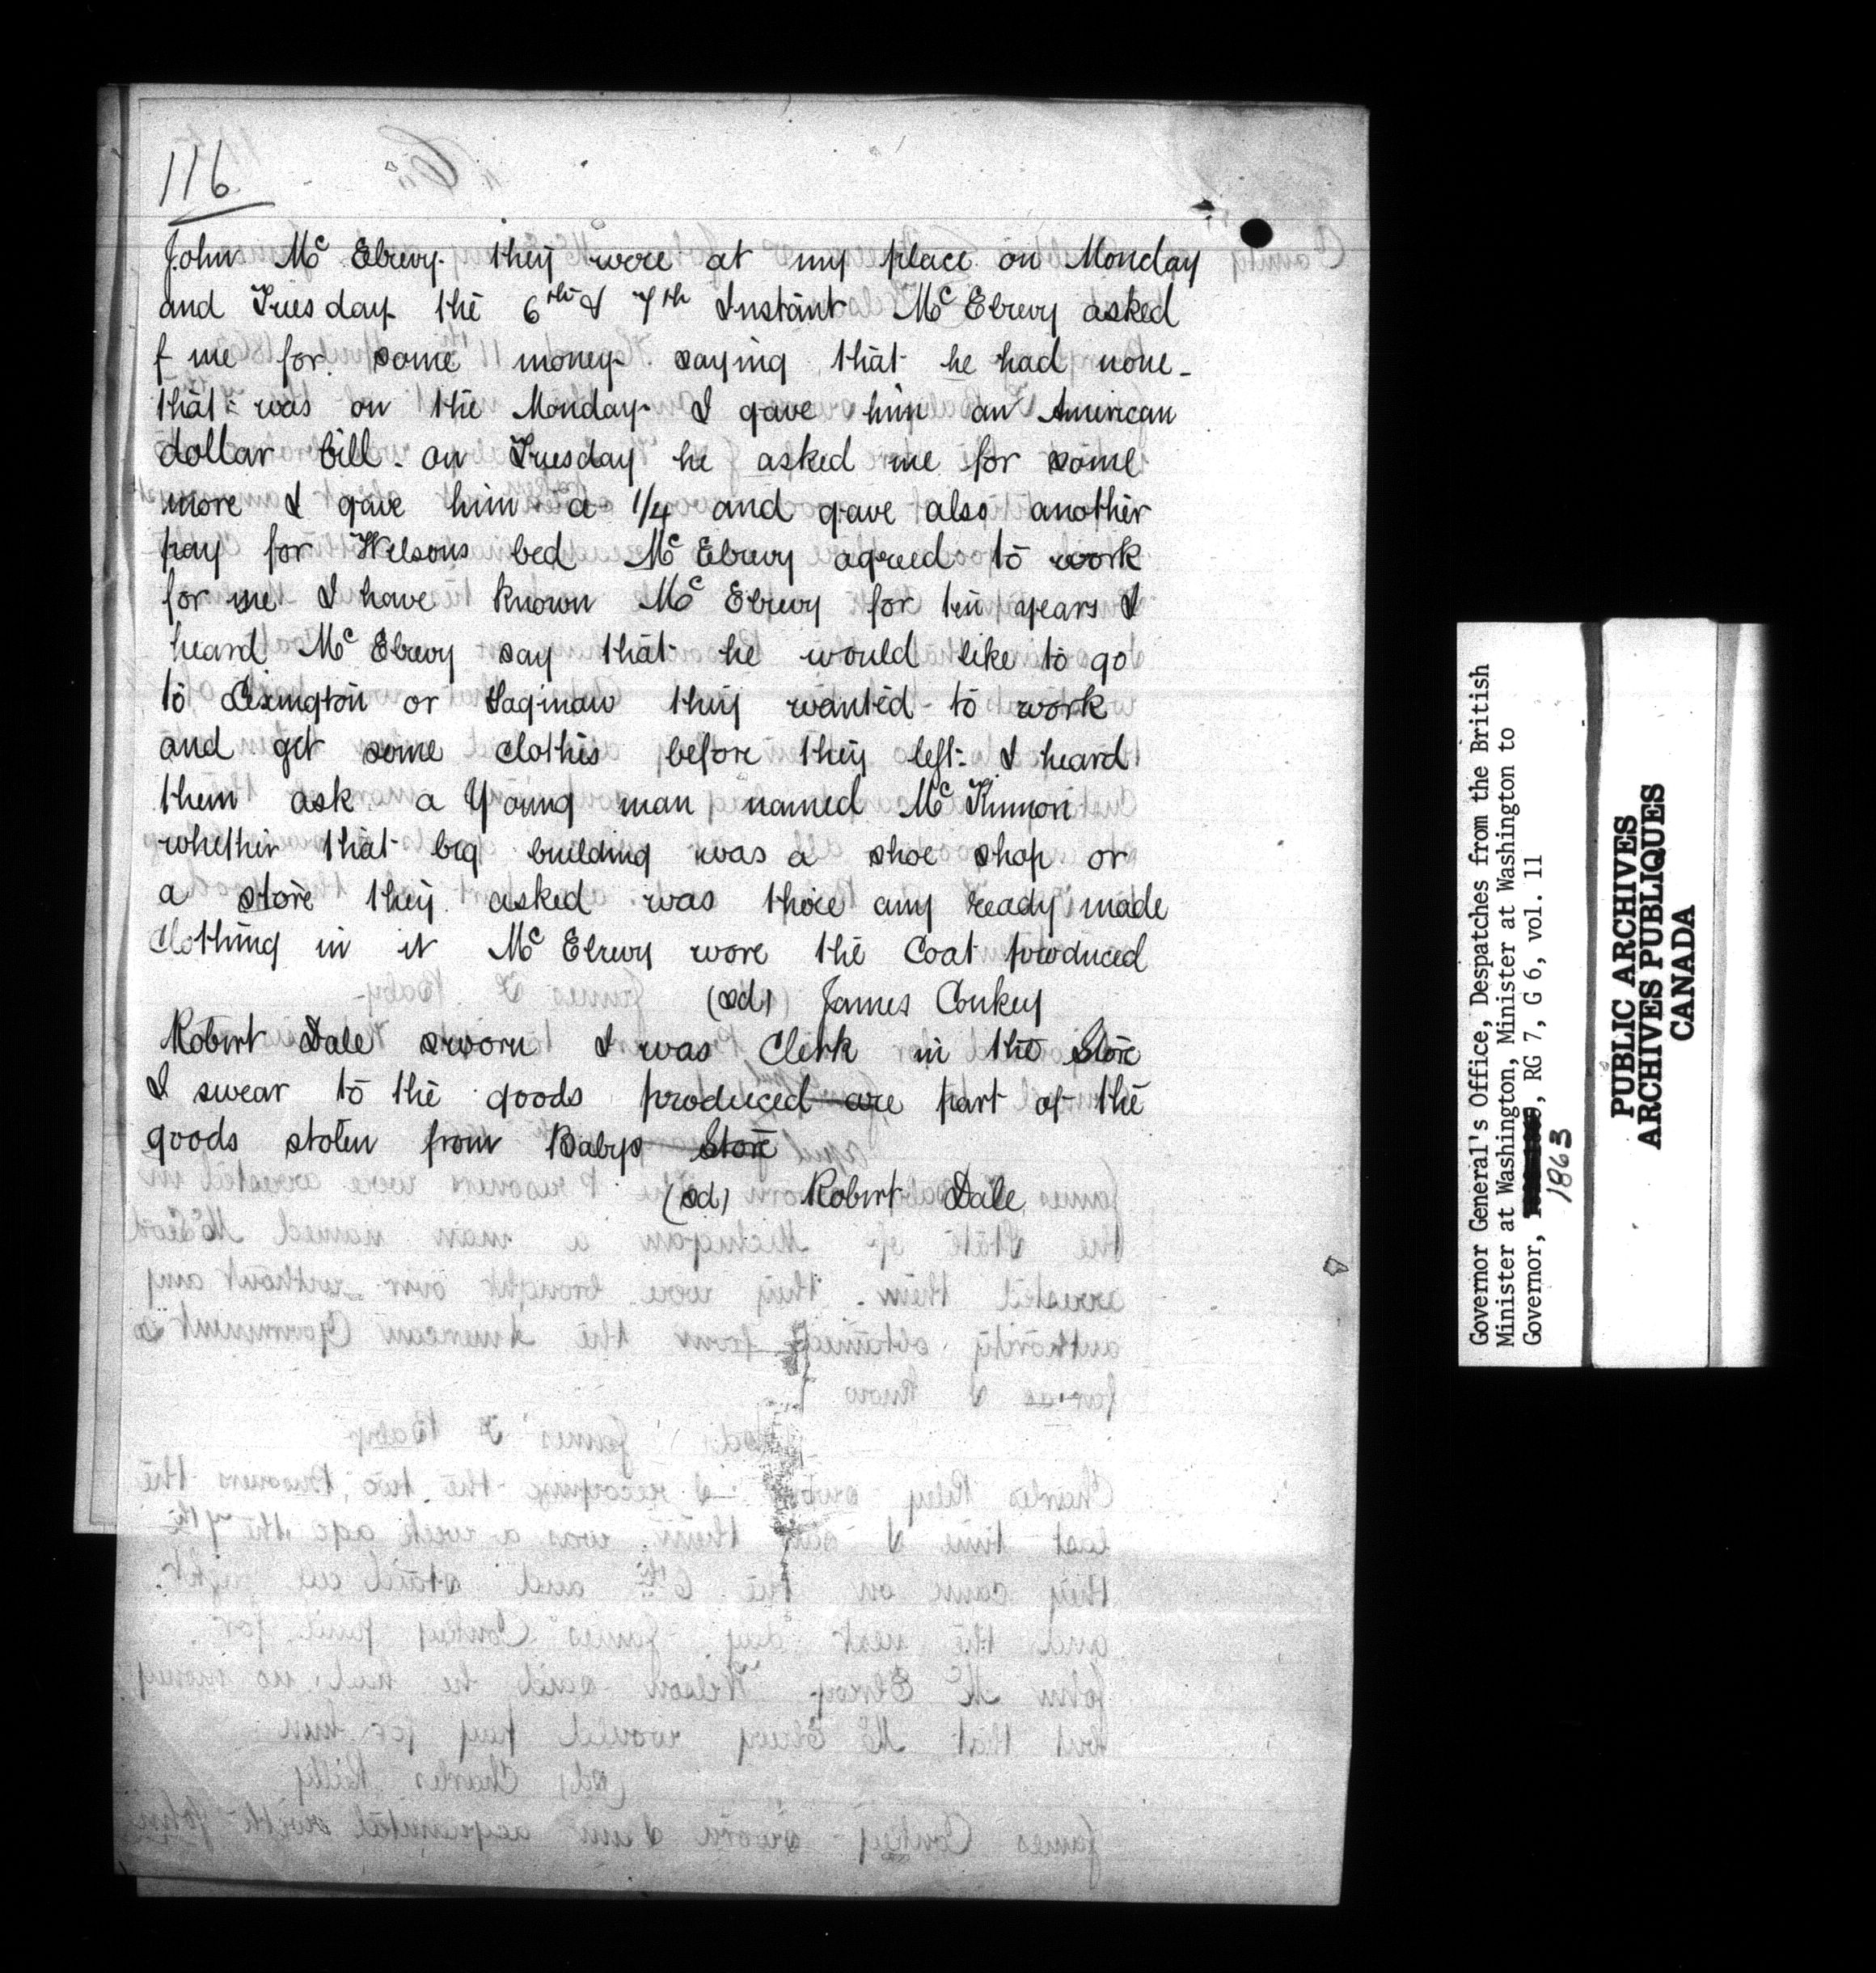 116
John Mc Elrevy they were at my place on Monday
and Tuesday the 6th & 7th Instant Mc Elrevy asked
f me for some money saying that he had none -
that was on the Monday I gave him an American
dollar bill - on Tuesday he asked me for some
more I gave him a 1/4 and gave also another
pay for Wilsons bed Mc Elrevy agreed to work
for me I have known Mc Elrevy for ten years I
heard Mc Elrevy say that he would like to go
to Lexington or Saginaw they wanted to work
and get some clothes before they left - I heard
them ask a Young man named Mc Kinnon
whether that big building was a shoe shop or
a store they asked was there any ready made
Clothing in it Mc Elrevy wore the Coat produced
(sd) James Conkey
Robert Dale sworn I was Clerk in the Store
I swear to the goods produced are part of the
goods stolen from Babys Store
(sd) Robert Dale
Governor General's Office, Despatches from the British
Minister at Washington, Minister at Washington to
Governor, RG 7, G 6, vol. 11
1863
PUBLIC ARCHIVES
ARCHIVES PUBLIQUES
CANADA